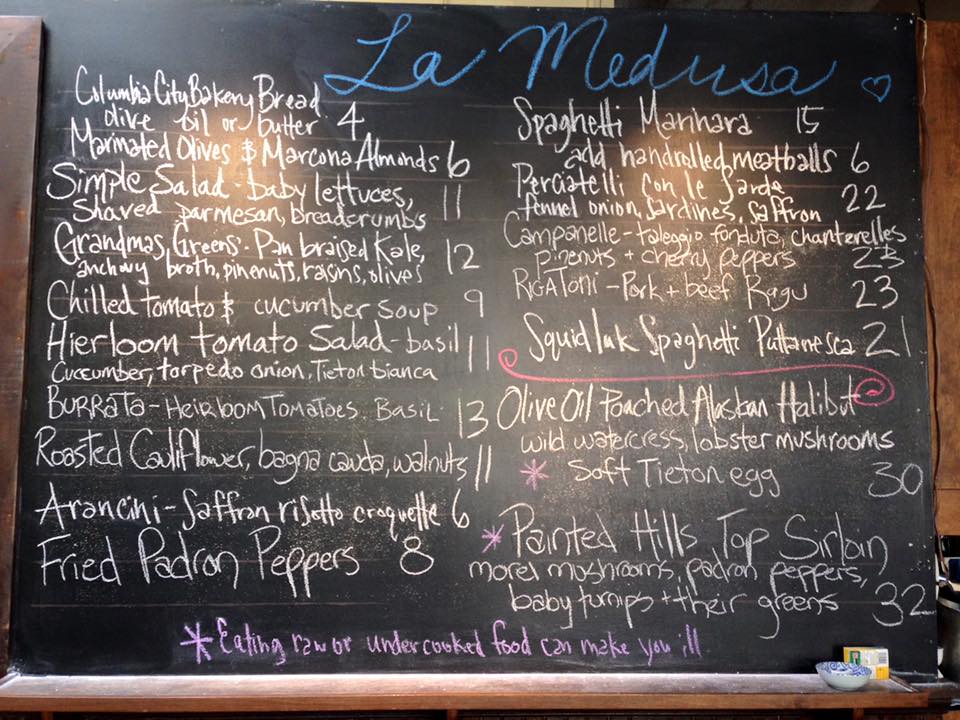 La Medusa
Columbia City Bakery Bread
olive oil or butter 4
Marinated Olives & Marcona Almonds 6
Simple Salad - baby lettuces,
Shaved parmesan, breadcrumbs 11
Grandmas Greens - Pan braised Kale,
anchovy broth, pinenuts, raisins, olives 12
Chilled tomato & cucumber soup 9
Hierloom tomato Salad - basil
Cucumber, torpedo onion, Tieton bianca 11
Burrata - Heirloom Tomatoes Basil 13
Roasted Cauliflower, bagna cauda, walnuts 11
Arancini - Saffron risotto croquette 6
Fried Padron Peppers 8
Spaghetti Marinara 15
add handrolled meatballs 6
Perciatelli con le Sarde
fennel onion, sardines, saffron 22
Campanelle - taleggio fonduta, chanterelles
pinenuts + cherry peppers 23
Rigatoni - Pork + beef Ragu 23
Squid Ink Spaghetti Puttanesca 21
Olive Oil Poached Alaskan Halibut
wild watercress, lobster mushrooms
* Soft Tieton egg 30
* Painted Hills Top Sirloin
morel mushrooms, padron peppers,
baby turnips + their greens 32
* Eating raw or undercooked food can make you ill